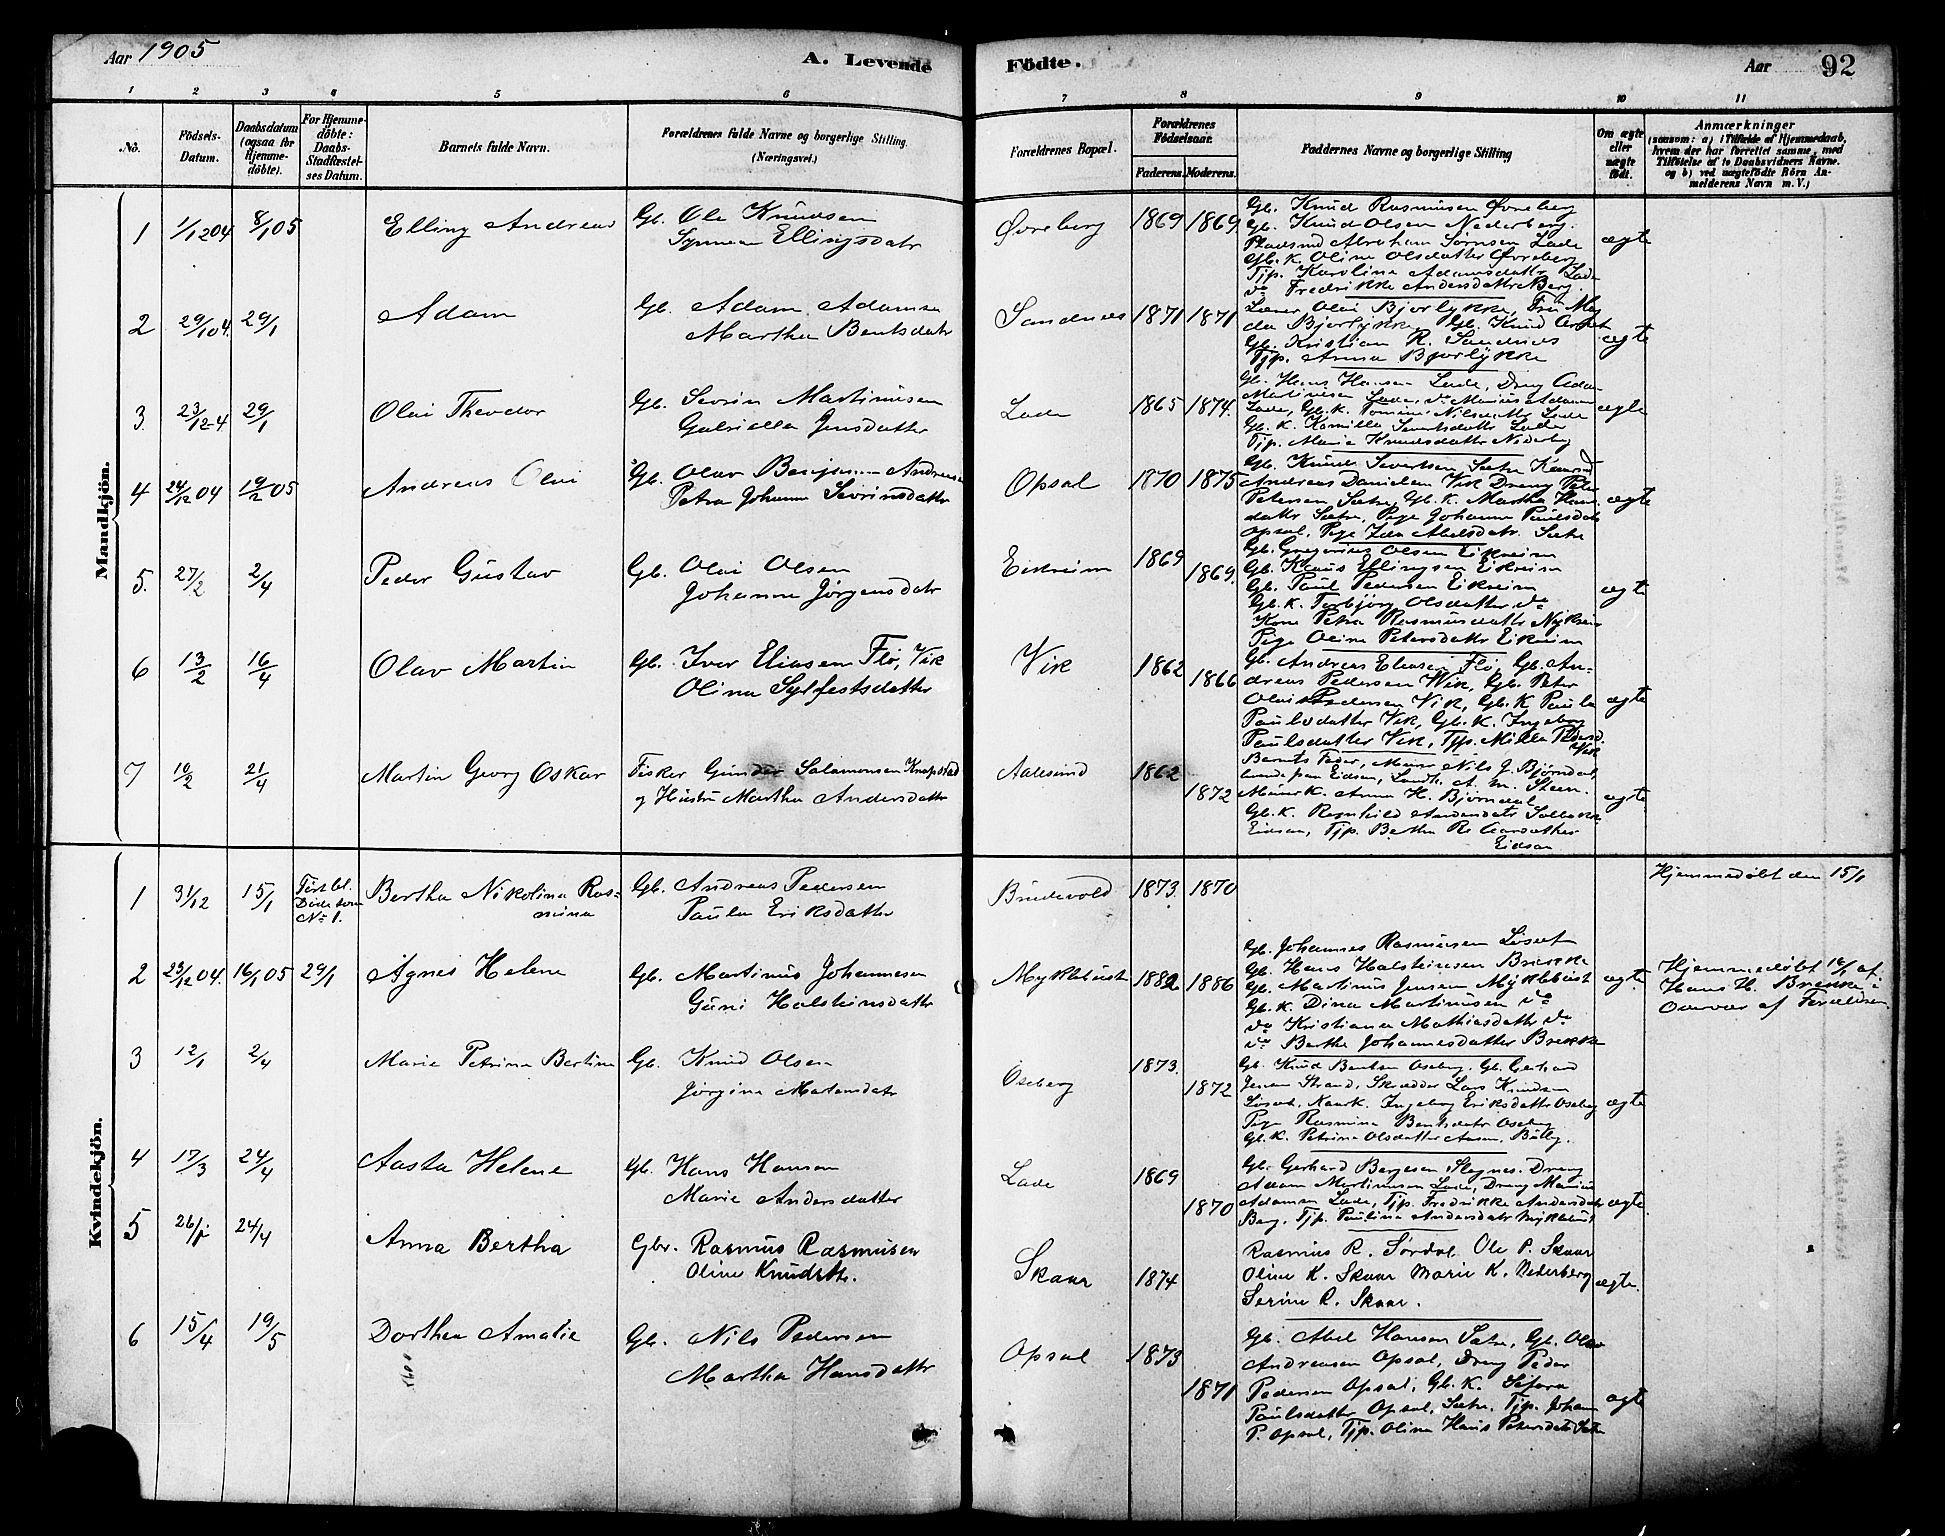 Aar 1905
A. Levende Födte.
Aar 92
1 2 3 4 5 6 7 8 9 10 11
No.
Födsels-
Datum.
Daabsdatum
(ogsaa för
Hjemme-
döbte).
For Hjemme-
döbte:
Daabs-
Stadfæstel-
ses Datum.
Barnets fulde Navn.
Forældrenes fulde Navne og borgerlige Stilling.
(Næringsvei.)
Forældrenes Bopæl.
Forældrenes
Födselsaar.
Faderens. Moderens.
Faddernes Navne og borgerlige Stilling
Om ægte
eller
uægte
födt.
Anmærkninger
(saasom: a) i Tilfælde af Hjemmedaab,
hvem der har forrettet samme, med
Tilföielse af to Daabsvidners Navne.
og b) ved uægtefödte Börn An-
melderens Navn m. V.)
Mandkjön.
1 1/12 04 8/1 05 Elling Andreas
Gb. Ole Knudsen
Synneva Ellingsdatr
Øvreberg 1869 1869
Gb. Knud Rasmusen Øvreberg
Gb. Knud Olsen Nederberg.
Pladsmd Abraham Sörnsen Lade
Gb. K. Olina Olsdatter Øvreberg
Tjp. Karolina Adamsdattr Lade
do Fredrikke Andersdattr Berg.
ægte
2 29/10 4. 29/1 Adam
Gb. Adam Adamsen
Martha Bentsdatr
Sandnes 1871 1871
Lærer Olai Bjorlykke, Fru Mag
da Bjorlykke, Gb. Knud Arset
Gb. Kristian R. Sandnes
Tjp. Anna Bjorlykke
ægte
3. 23/12 4. 29/1 Olai Theodor
Gb. Sevrin Martinusen
Gabriella Jensdatter
Lade 1865 1874.
Gb. Hans Hansen Lade, Dreng Adam
Martinusen Lade, do Marius Adamsen
Lade, Gb. K. Nilsdattr Lade
Gb. K. Kamilla Severtsdattr Lade
Tjp. Maria Knudsdattr Nederberg
ægte
4 24/12 04 19/2 05 Andreas Olai
Gb. Olav Benjamin Andreasen
Petra Johanna Sevrinsdattr
Opsal 1870 1875
Gb. Knud Severtsen Sætre
Andreas Danielsen Vik Dreng Peter
Petersen Sætre, Gb. K. Martha Hans
dattr Sætre, Pige Johanna Paulsdatr
Opsal, Pige Ida Abelsdatr. Sætre
ægte
5. 27/2 2/4 Peder Gustav
Gb. Olai Olsen
Johanna Jörgensdatr
Eikreim 1869 1869.
Gb. Gregorius Olsen Eikreim
Gb. Klaus Ellingsen Eikreim
Gb. Paul Pedersen Eikreim
Gb. K. Torbjörg Olsdatter do
Kone Petra Rasmusdattr Nykrein
Pige Olina Petersdattr Eikreim
ægte
6 13/2 16/4 Olav Martin
Gb. Iver Eliasen Flö, Vik
Olina Sylfestsdatter
Vik 1862 1866
Gb. Andreas Eliasen Flö, Gb. An-
dreas Pedersen Vik, Gb. Peter
Olai Pedersen Vik, Gb. K Paula
Paulsdatter Vik, Gb. K. Ingeborg
Paulsdatter Vik, Tjp. Milla Pedersd
Vik
ægte
7 10/2 21/4 Martin Georg Oskar
Fisker Gunder Salamonsen Knapstad
og Hustru Martha Andersdattr
Aalesund 1862 1872
Barnets Fader, Murer Nils J. Björndal
Eidsen, A. M. Steen.
Murer k. Anna H. Björndal
Gb. K. Ragnhild Andersdatr Solbakk
Eidsen, Tjp. Bertha
Eidsen
ægte
Kvindekjön.
1 31/12 15/1 Bertha Nikolina Ras-
mina
Død som
No 1.
Gb. Andreas Pedersen
Paula Eriksdatter
Brudevold 1873. 1870
Hjemmedöbt den 15/1
2 23/12 04. 16/1 05 29/1 Agnes Helene
Gb. Martinus Johannesen
Guri Halsteinsdattr
Myklebust 1882 1886
Gb. Johannes Rasmusen Löset
Gb. Hans Halsteinsen Brekke
Gb. Martinus Jensen Myklebust
Gb. K. Dina Martinusen do
do Kristiana Mathiasdattr do
do Berthe Johannesdatter Brekke
ægte
Hjemmedöbt 16/1 af
Hans H. Brekke i
Overvær af Forældren
3 12/1 2/4 Marie Petrina Bertina
Gb. Knud Olsen
Jörgina Martensdatr
Oseberg 1873. 1872
Gb. Knud Bentsen Oseberg, Gb. Gerhard
Jensen Strand, Skrædder Lars Knudsen
Löset, Ingeborg Eriksdattr Oseberg
Pige Rasmina Bentsdatr Oseberg
Gb. K. Petrina Olsdatter Aasen,
ægte
4 17/3 24/4 Aasta Helene
Gb. Hans Hansen
Marie Andersdatter
Lade 1869 1870
Gb. Gerhard Bergesen Slagnes. Dreng
Adam Martinusen Lade, Dreng Marius
Adamsen Lade, Tjp. Fredrikke Andersdatr
Berg, Tjp. Paulina Andersdatr Myklebust
ægte.
5 26/1 24/4 Anna Bertha
Gbr. Rasmus Rasmusen
Oline Knudsttr.
Skaar 1874
Rasmus R. Sördal. Ole P. Skaar
Oline K. Skaar Marie K. Nederberg
Serine R. Skaar.
ægte.
6 15/4 19/5 Dorthea Amalie
Gb. Nils Pedersen
Martha Hansdattr
Opsal 1873 1871
Gb. Abel Hansen Sætre, Gb. Olav
Andreasen Opsal, Dreng Peder
Pedersen Opsal, Gb. K. Sefora
Paulsdatter Opsal, Sætre. Tjp. Johan
P. Opsal, Tjp. Olina Hans Petersdatr Sætre
ægte